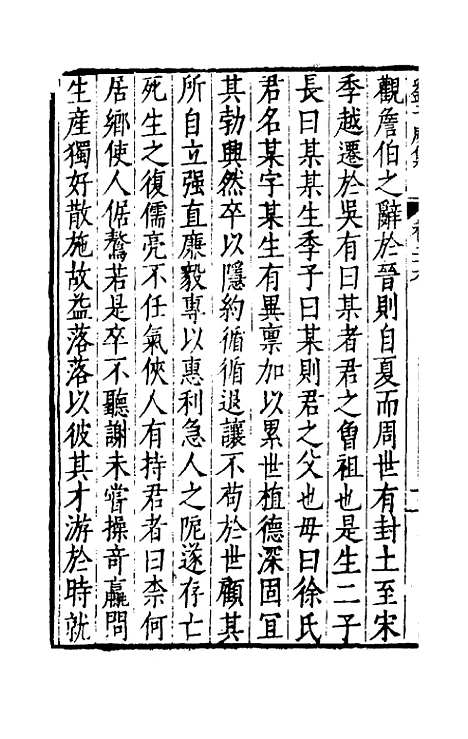 觀詹伯之辭於晉則自夏而周世有封土至宋
季越遷於吳有曰某者君之曾祖也是生二子
長曰某某生季子曰某則君之父也毋曰徐氏
君名某字某生有異禀加以累世植德深固冝
其勃興然卒以隱約循循退讓不苟於世顧其
所自立强直廉毅專以惠利急人之阨遂存亡
死生之復儒亮不任氣俠人有持君者曰柰何
居鄉使人倨驁若是卒不聽謝未嘗操奇贏問
生産獨好散施故益落落以彼其才游於時就